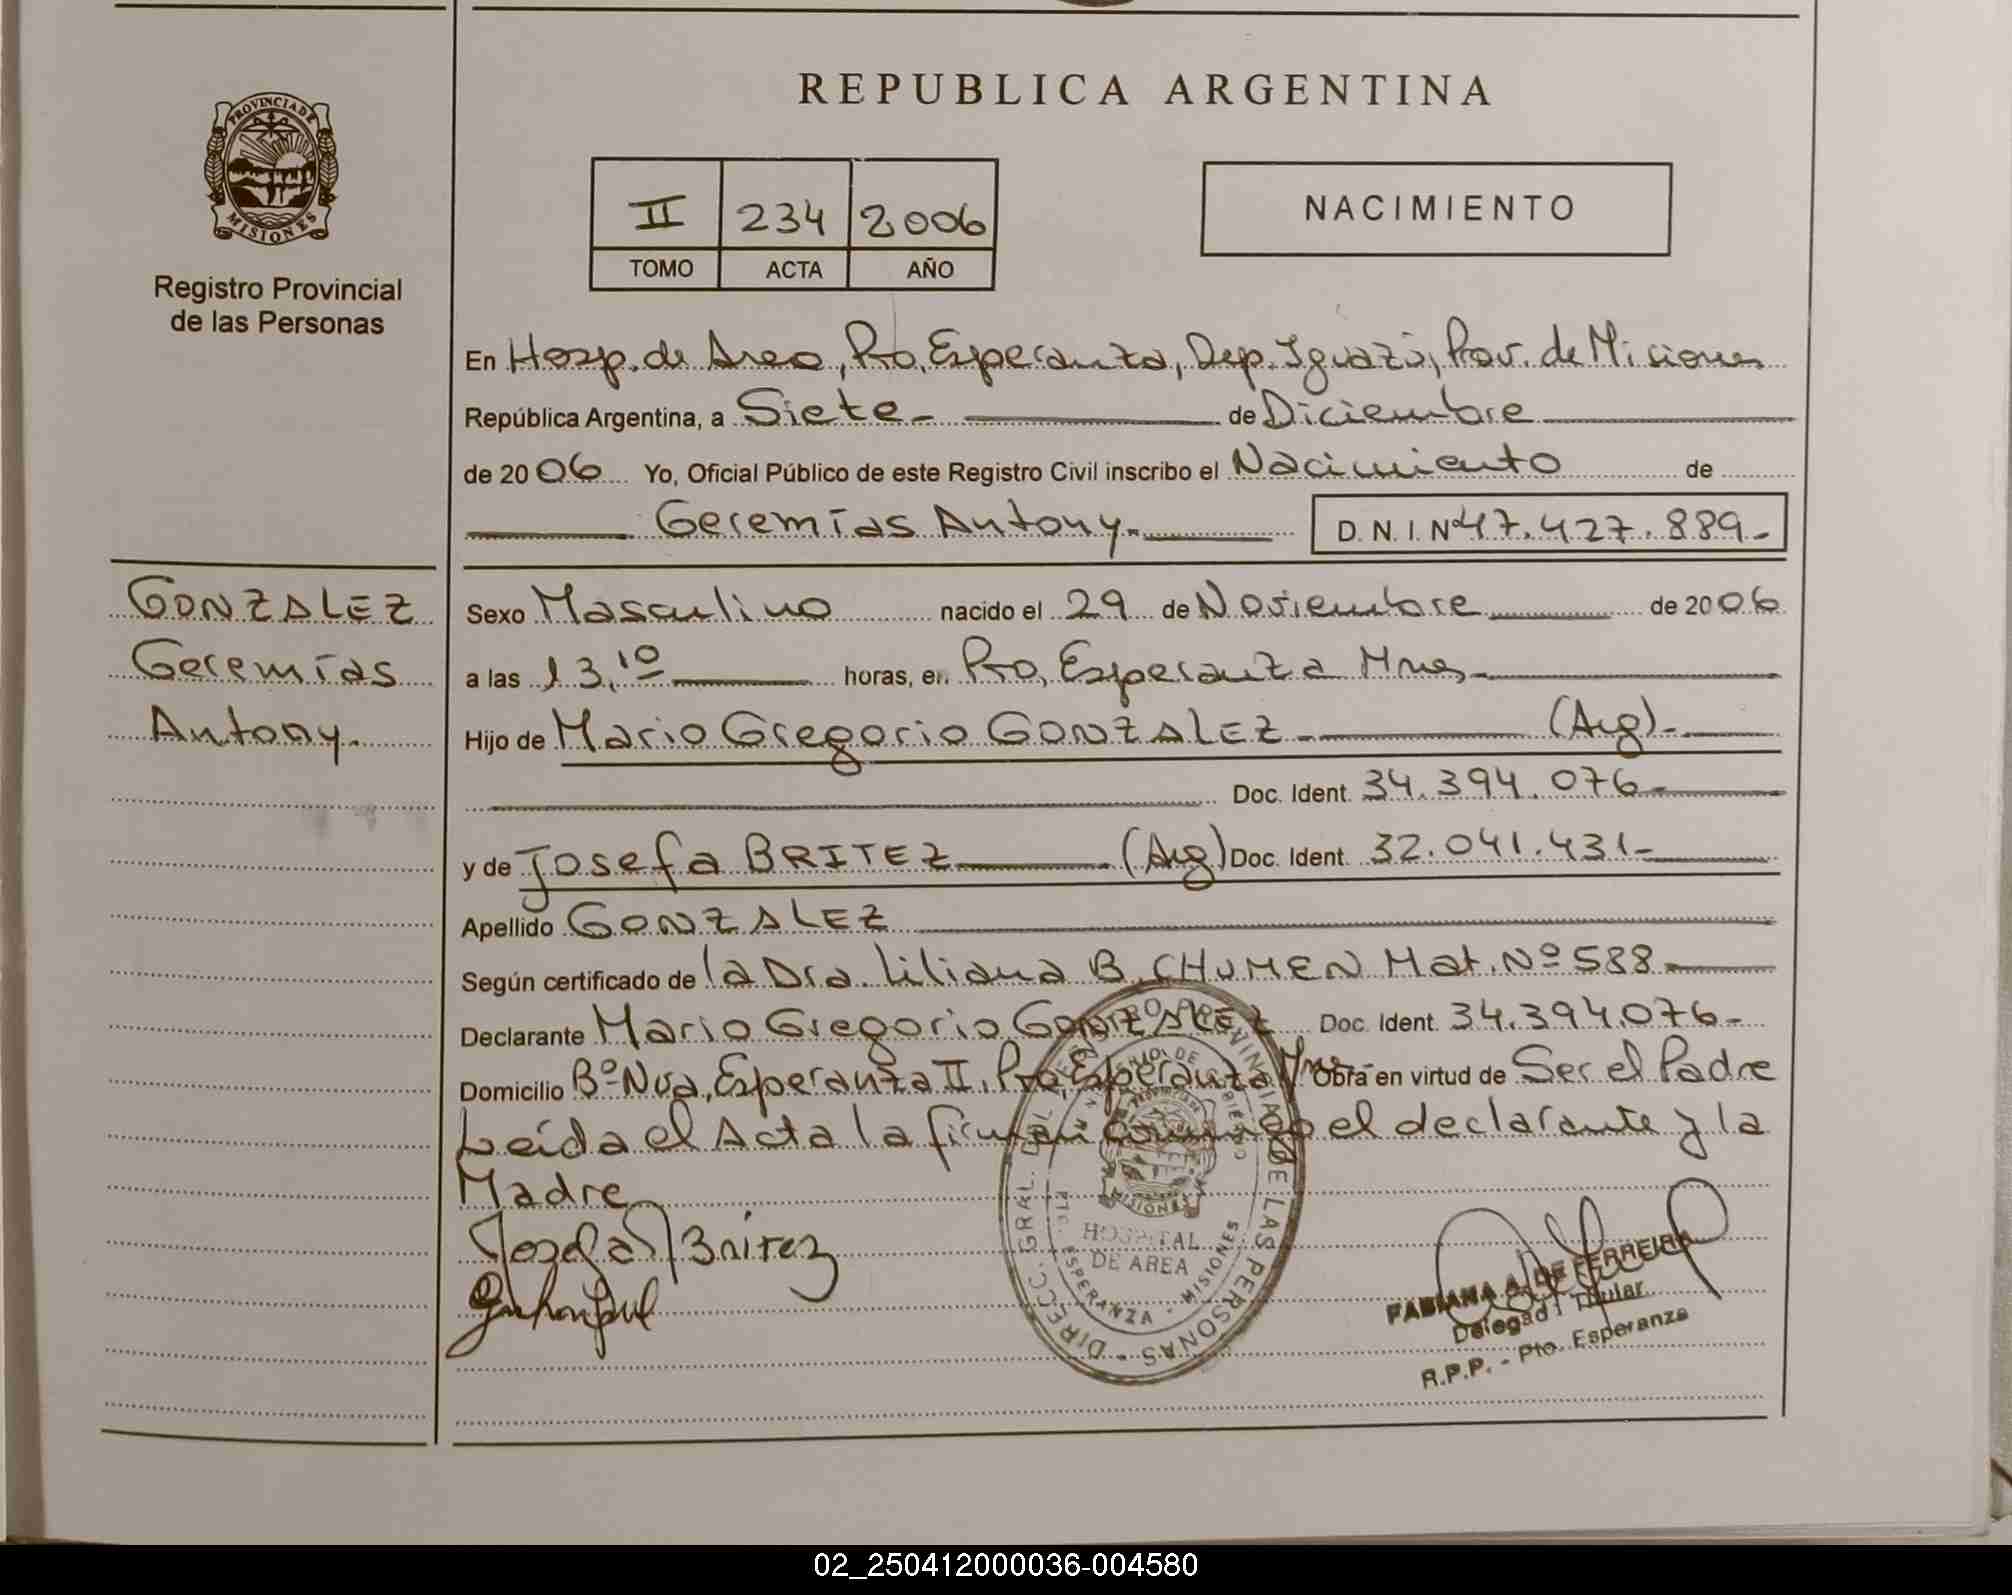 REPUBLICA ARGENTINA
PROVINCIA DE
MISIONES
Registro Provincial
de las Personas
II 234 2006
TOMO ACTA AÑO
NACIMIENTO
En Hosp. de Area, Pto. Esperanza, Dep. Iguazú, Prov. de Misiones
República Argentina, a Siete de Diciembre
de 2006 Yo, Oficial Público de este Registro Civil inscribo el Nacimiento de
Geremías Antony. D.N.I. Nº 47.427.889
GONZALEZ
Geremías
Antony.
Sexo Masculino nacido el 29 de Noviembre de 2006
a las 13,10 horas, en Pto, Esperanza Mnes
Hijo de Mario Gregorio GONZALEZ (Arg)
Doc. Ident. 34.394.076
y de Josefa BRITEZ (Arg) Doc. Ident. 32.041.431
Apellido GONZALEZ
Según certificado de la Dra. Liliana B. CHUMEN Mat. Nº 588
Declarante Mario Gregorio GONZALEZ Doc. Ident. 34.394.076
Domicilio Bº Nva, Esperanza II, Pto, Esperanza Mnes Obra en virtud de Ser el Padre
Leída el Acta la firman conmigo el declarante y la
Madre
Josefa Britez
DE LAS PERSONAS
HOSPITAL
DE AREA
ESPERANZA - MISIONES
FABIANA A. DE FERREIRA
Delegada Titular
R.P.P. - Pto. Esperanza
02_250412000036-004580